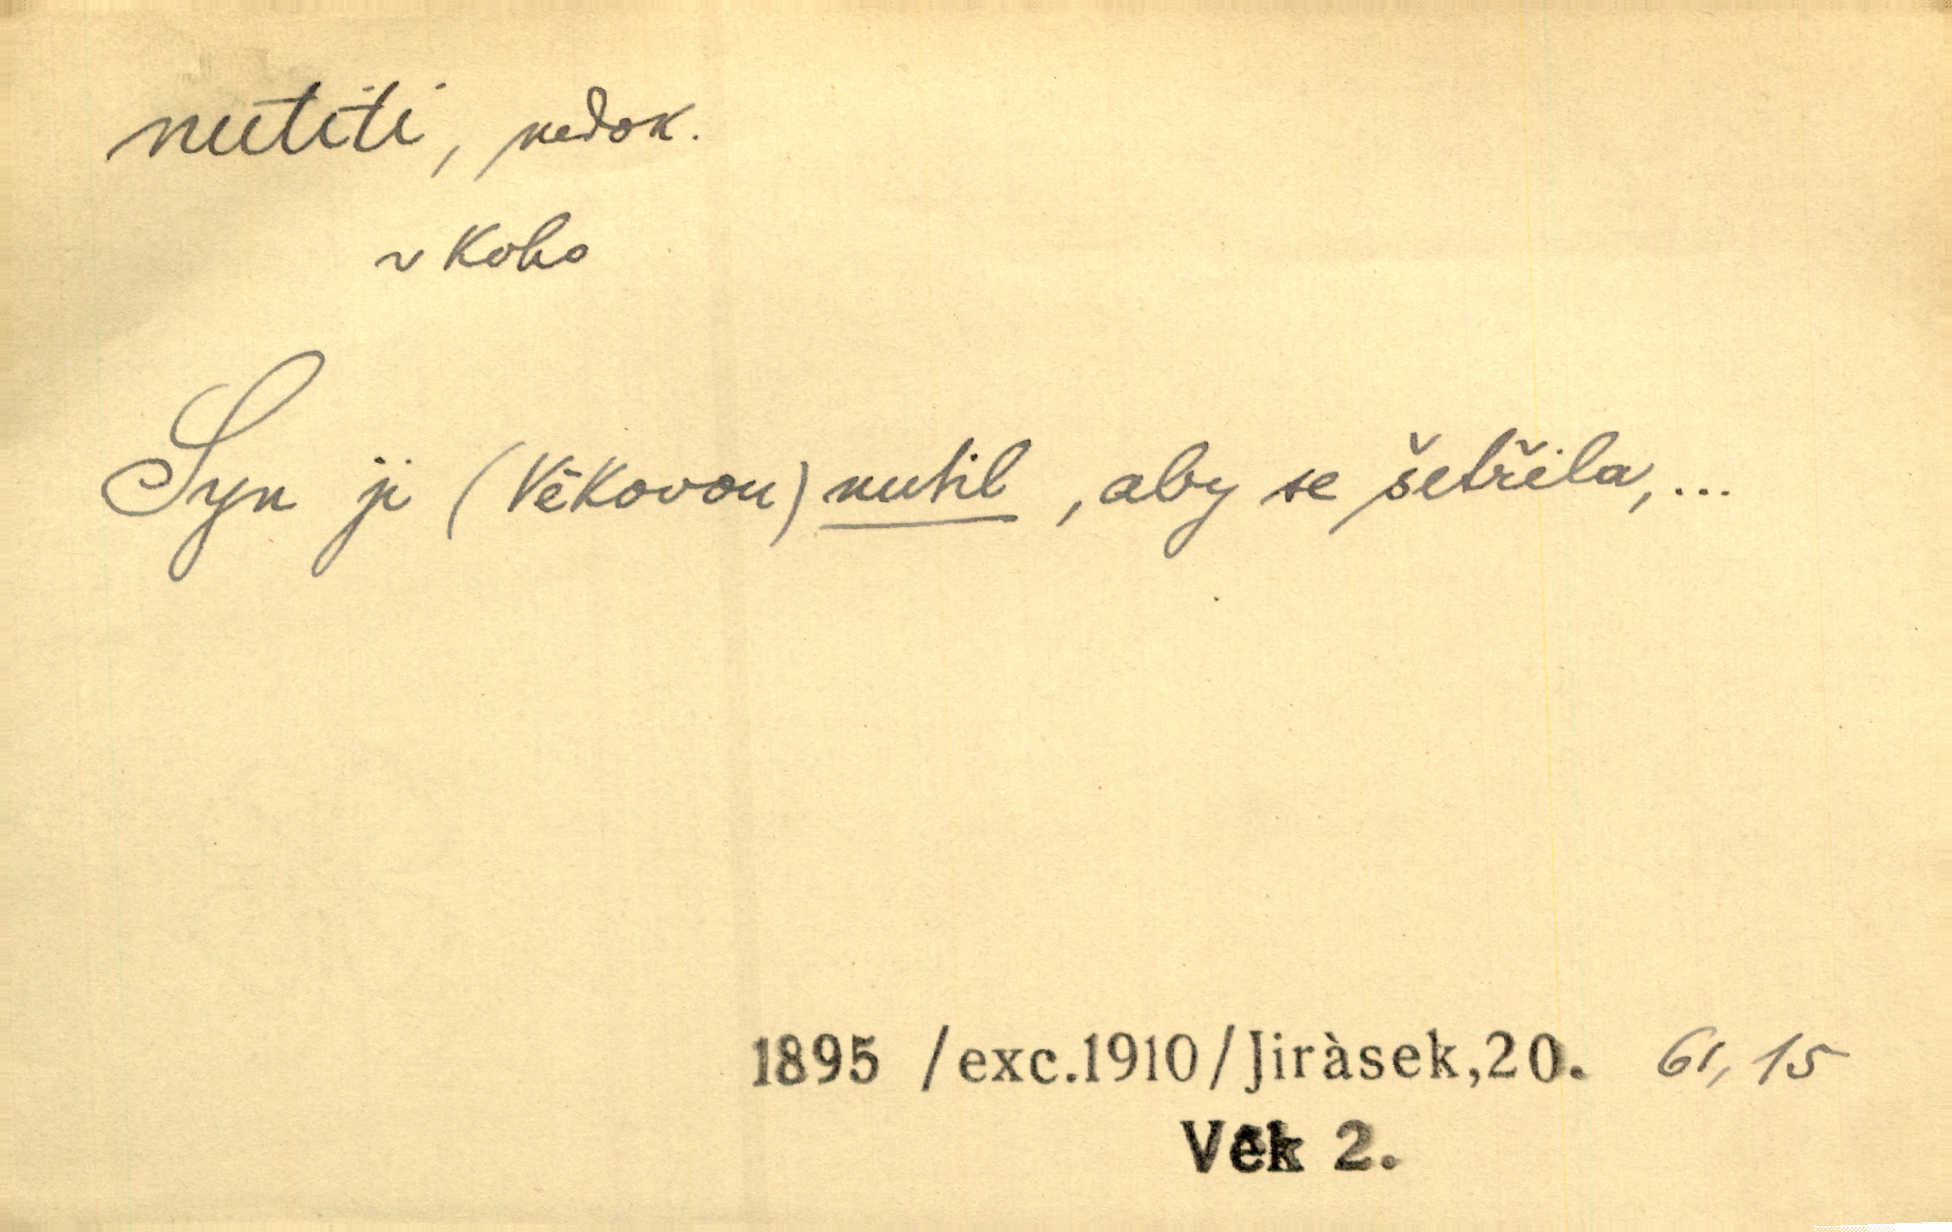 nutiti, nedok.
~ koho
Syn ji (Věkovou) nutil, aby se šetřila,...
1895 /exc.1910/Jiràsek,20. 61,15
Věk 2.